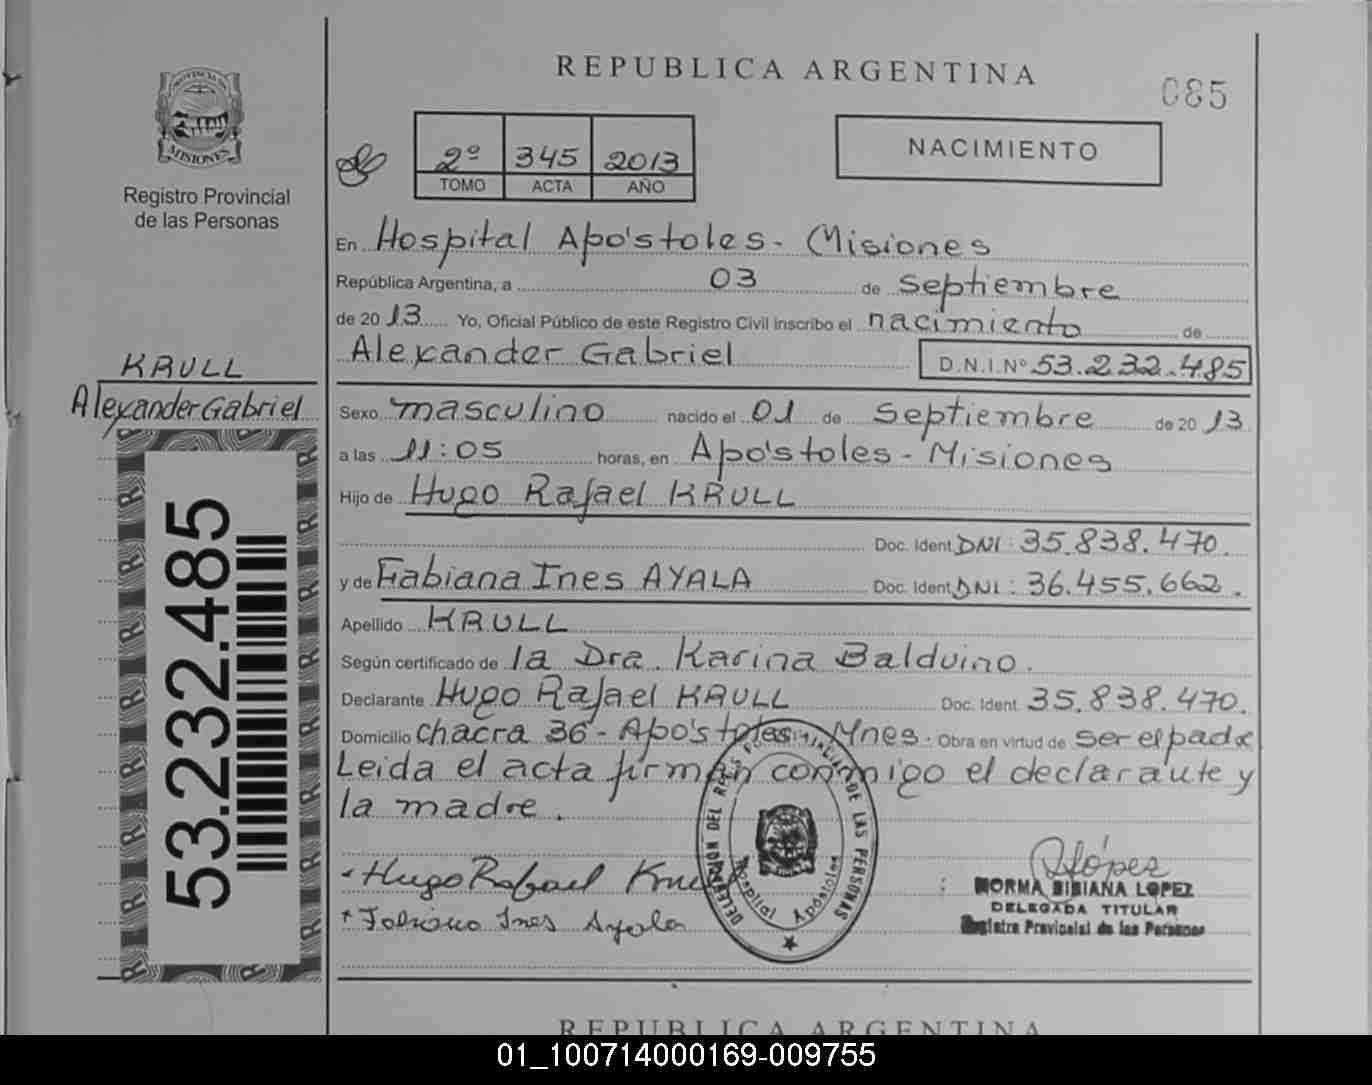 REPUBLICA ARGENTINA
085
PROVINCIA DE
MISIONES
Registro Provincial
de las Personas
2º 345 2013
TOMO ACTA AÑO
NACIMIENTO
En Hospital Apóstoles - Misiones
República Argentina, a 03 de septiembre
de 2013 Yo, Oficial Público de este Registro Civil inscribo el nacimiento de
Alexander Gabriel D.N.I.Nº 53.232.485
KRULL
Alexander Gabriel
53.232.485
Sexo masculino nacido el 01 de septiembre de 2013
a las 11:05 horas, en Apóstoles - Misiones
Hijo de Hugo Rafael KRULL
Doc. Ident DNI: 35.838.470.
y de Fabiana Ines AYALA Doc. Ident DNI: 36.455.662.
Apellido KRULL
Según certificado de la Dra. Karina Balduino.
Declarante Hugo Rafael KRULL Doc. Ident. 35.838.470.
Domicilio chacra 36 - Apóstoles - Mnes. Obra en virtud de ser el padre
Leida el acta firman conmigo el declarante y
la madre.
Hugo Rafael Krull
Fabiana Ines Ayala
DE LAS PERSONAS
Hospital Apóstoles
López
NORMA BIBIANA LOPEZ
DELEGADA TITULAR
Registro Provincial de las Personas
REPUBLICA ARGENTINA
01_100714000169-009755